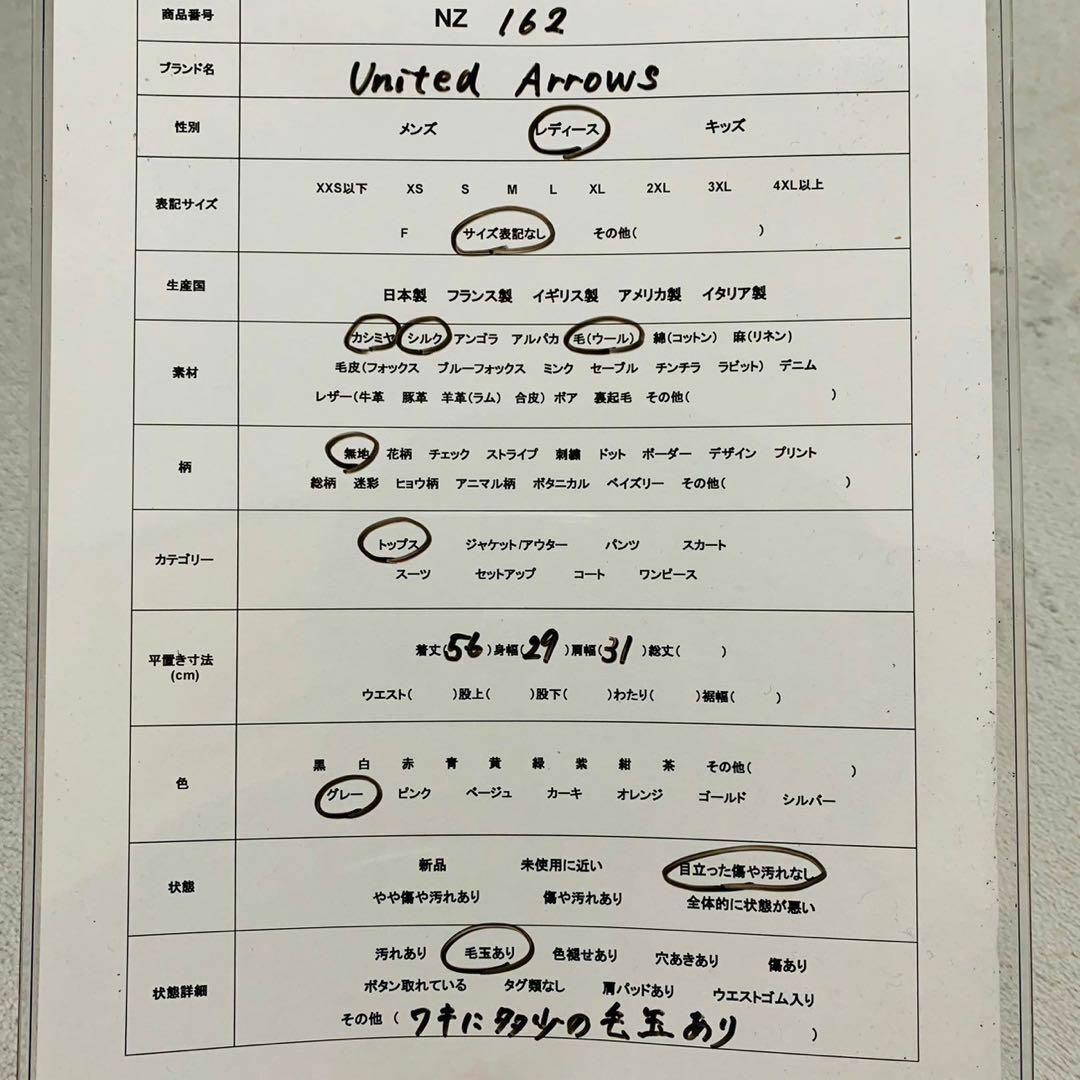 商品番号 NZ 162
ブランド名 United Arrows
性別 メンズ レディース キッズ
表記サイズ XXS以下 XS S M L XL 2XL 3XL 4XL以上
F サイズ表記なし その他( )
生産国 日本製 フランス製 イギリス製 アメリカ製 イタリア製
素材 カシミヤ シルク アンゴラ アルパカ 毛(ウール) 綿(コットン) 麻(リネン)
毛皮(フォックス ブルーフォックス ミンク セーブル チンチラ ラビット) デニム
レザー(牛革 豚革 羊革(ラム) 合皮) ボア 裏起毛 その他( )
柄 無地 花柄 チェック ストライプ 刺繍 ドット ボーダー デザイン プリント
総柄 迷彩 ヒョウ柄 アニマル柄 ボタニカル ペイズリー その他( )
カテゴリー トップス ジャケット/アウター パンツ スカート
スーツ セットアップ コート ワンピース
平置き寸法 (cm) 着丈(56)身幅(29)肩幅(31)総丈( )
ウエスト( )股上( )股下( )わたり( )裾幅( )
色 黒 白 赤 青 黄 緑 紫 紺 茶 その他( )
グレー ピンク ベージュ カーキ オレンジ ゴールド シルバー
状態 新品 未使用に近い 目立った傷や汚れなし
やや傷や汚れあり 傷や汚れあり 全体的に状態が悪い
状態詳細 汚れあり 毛玉あり 色褪せあり 穴あきあり 傷あり
ボタン取れている タグ類なし 肩パッドあり ウエストゴム入り
その他 ( ワキに多少の毛玉あり )